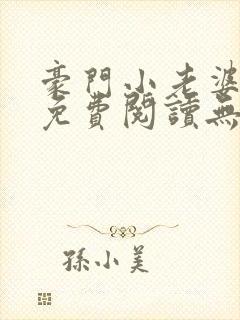 豪門小老婆
免費閱讀無
孫小美